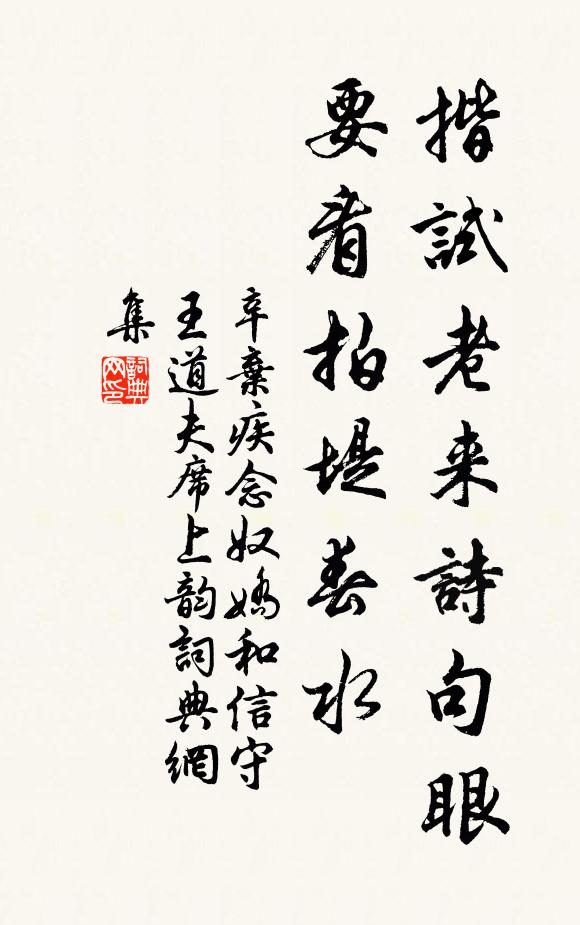 揩試老来詩句眼
要看拍堤春水
辛棄疾念奴嬌和信守
王道夫席上韵詞典網
集
詞典网印